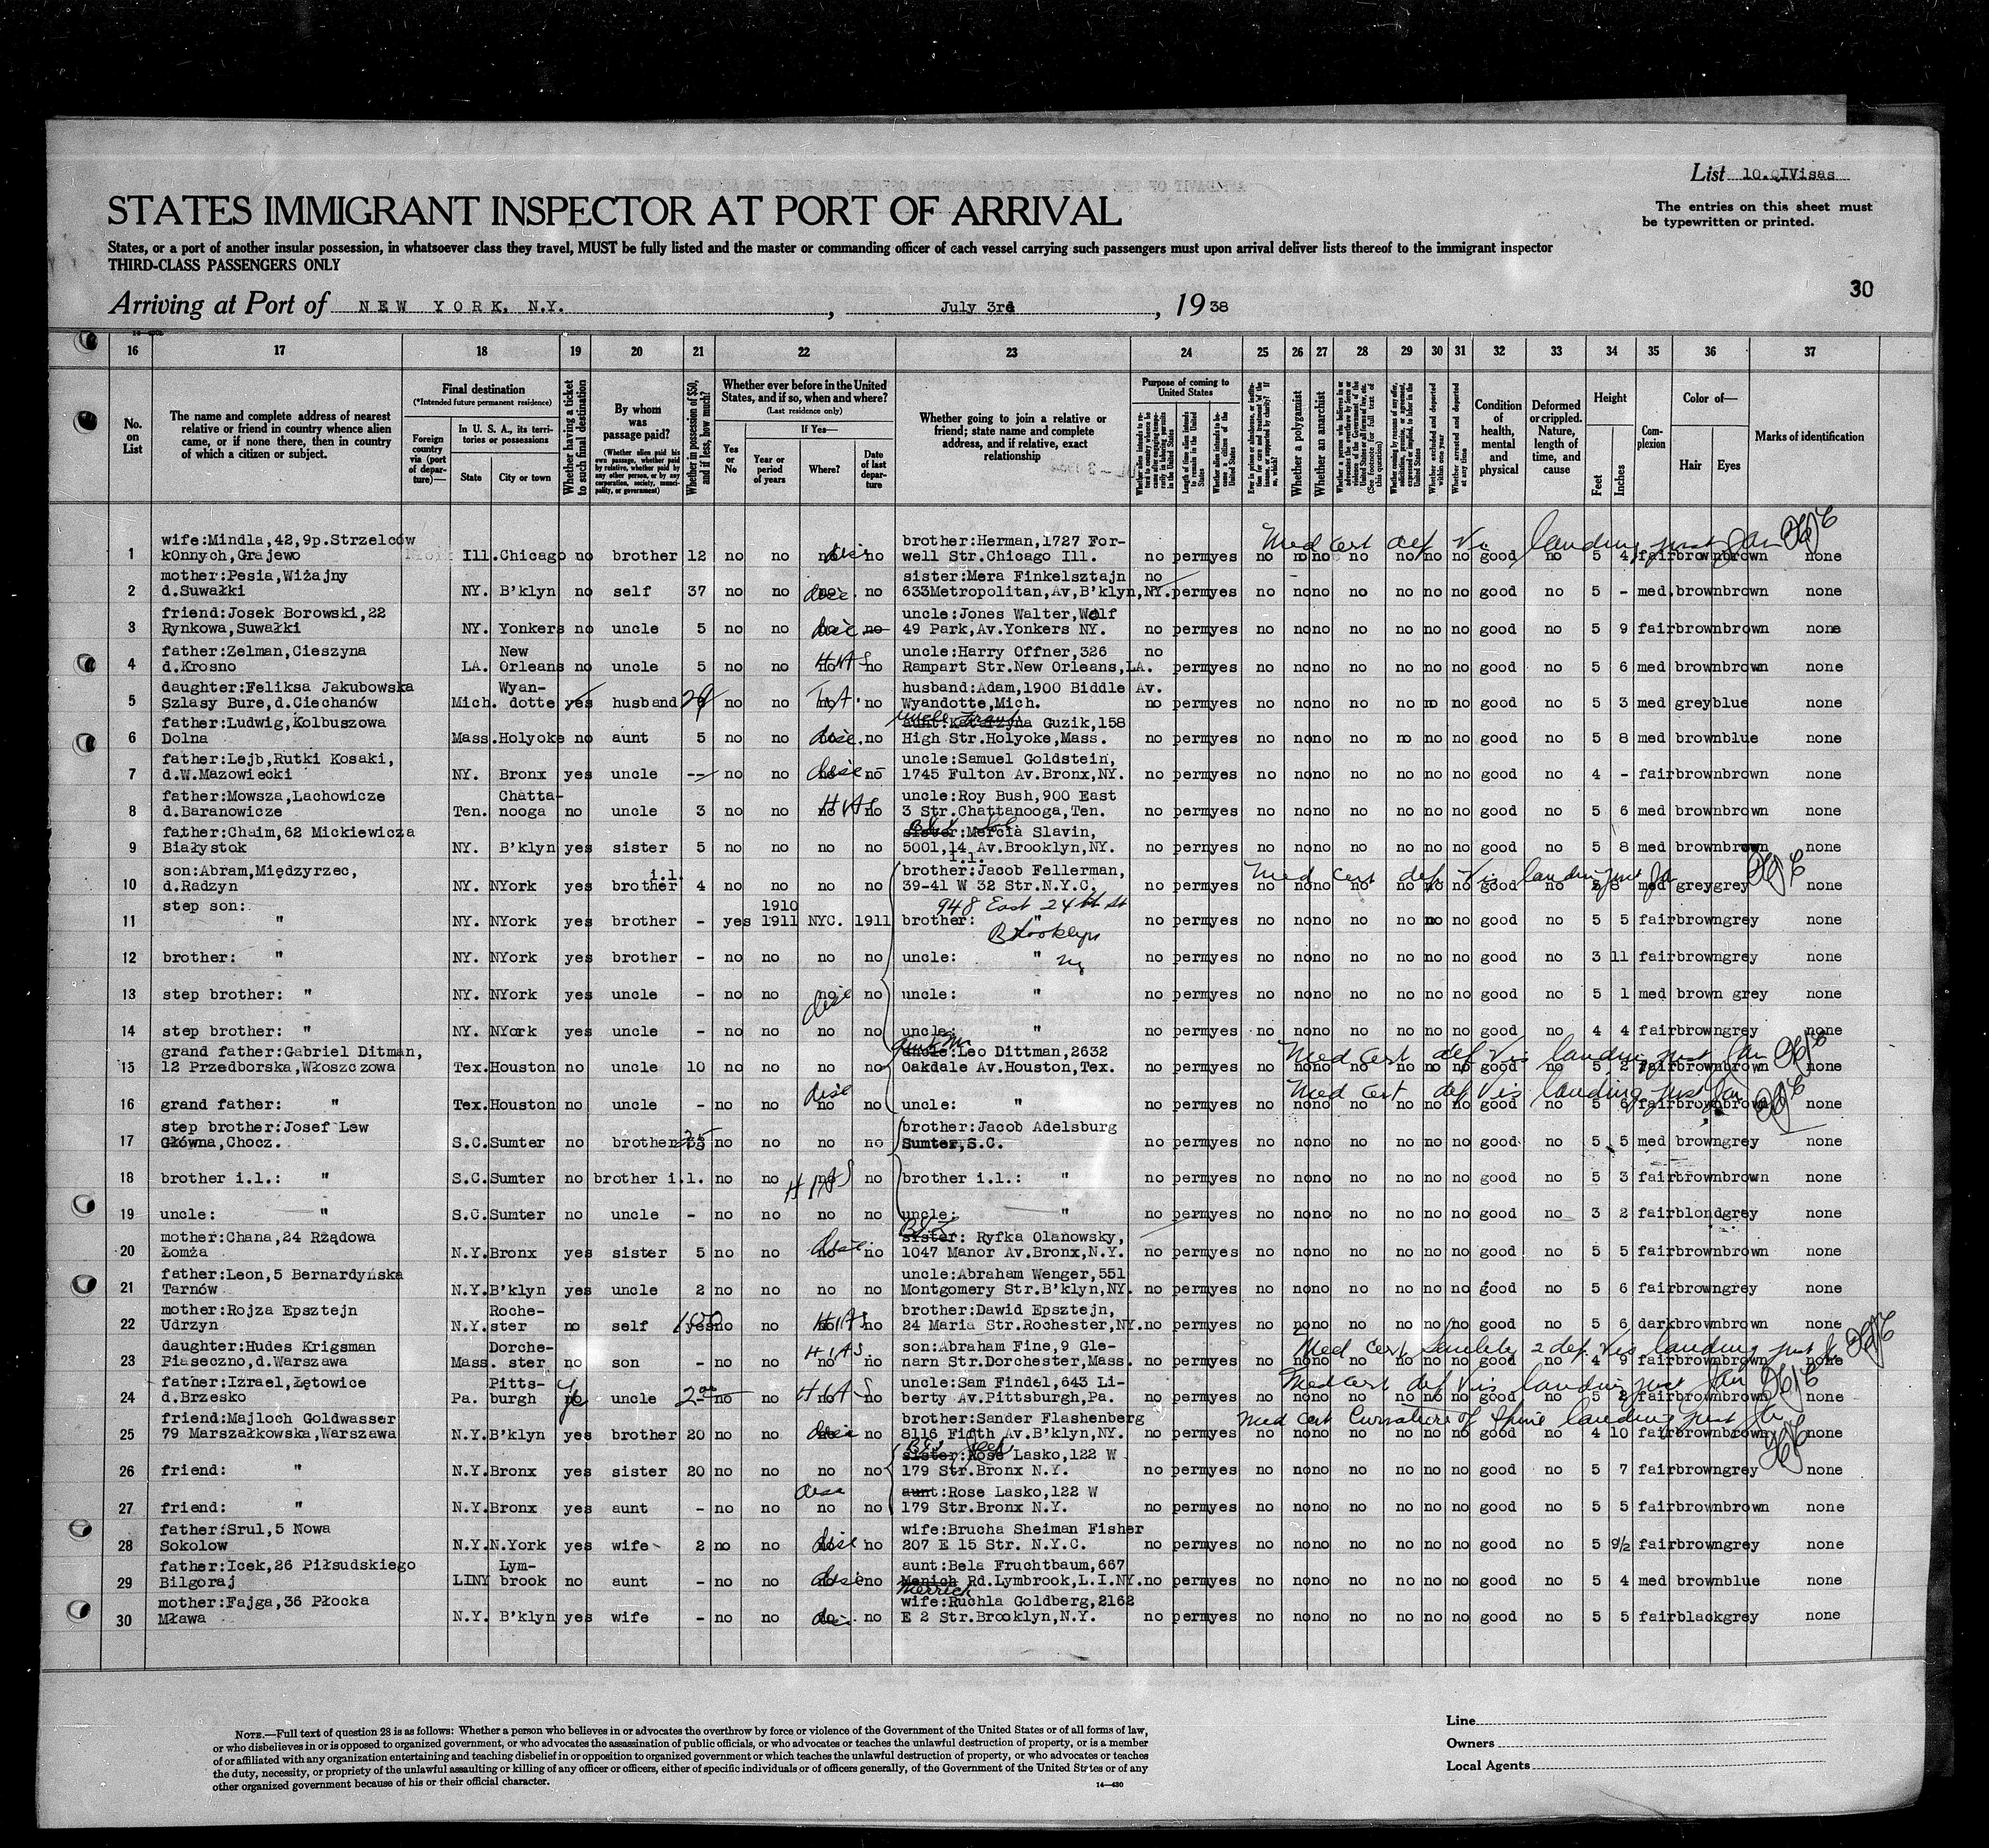 List 10.QIVisas
STATES IMMIGRANT INSPECTOR AT PORT OF ARRIVAL
The entries on this sheet must
be typewritten or printed.
States, or a port of another insular possession, in whatsoever class they travel, MUST be fully listed and the master or commanding officer of each vessel carrying such passengers must upon arrival deliver lists thereof to the immigrant inspector
THIRD-CLASS PASSENGERS ONLY
30
Arriving at Port of NEW YORK, N.Y. , July 3rd , 19 38
16 17 18 19 20 21 22 23 24 25 26 27 28 29 30 31 32 33 34 35 36 37
No. on List
The name and complete address of nearest relative or friend in country whence alien came, or if none there, then in country of which a citizen or subject.
Final destination
(*Intended future permanent residence)
Foreign country via (port of departure)—
In U. S. A., its territories or possessions
State City or town
Whether having a ticket to such final destination
By whom was passage paid?
(Whether alien paid his own passage, whether paid by relative, whether paid by any other person, or by any corporation, society, municipality, or government)
Whether in possession of $50, and if less, how much?
Whether ever before in the United States, and if so, when and where?
(Last residence only)
Yes or No
If Yes—
Year or period of years Where? Date of last departure
Whether going to join a relative or friend; state name and complete address, and if relative, exact relationship
Purpose of coming to United States
Whether a polygamist
Whether an anarchist
Condition of health, mental and physical
Deformed or crippled. Nature, length of time, and cause
Height
Feet Inches
Complexion
Color of—
Hair Eyes
Marks of identification
wife:Mindla,42,9p.Strzelców brother:Herman,1727 For- Med cert def Vis landing
1 kOnnych,Grajewo Ill. Chicago no brother 12 no no no no well Str.Chicago Ill. no perm yes no no no no no no no good no 5 4 fair brown brown none
mother:Pesia,Wiżajny sister:Mera Finkelsztajn no
2 d.Suwałki NY. B'klyn no self 37 no no no no 633Metropolitan,Av,B'klyn,NY. perm yes no no no no no no no good no 5 - med. brown brown none
friend:Josek Borowski,22 uncle:Jones Walter,Wolf
3 Rynkowa,Suwałki NY. Yonkers no uncle 5 no no no no 49 Park,Av.Yonkers NY. no perm yes no no no no no no no good no 5 9 fair brown brown none
father:Zelman,Cieszyna New uncle:Harry Offner,326 no
4 d.Krosno LA. Orleans no uncle 5 no no no HIAS no Rampart Str.New Orleans,LA. perm yes no no no no no no no good no 5 6 med brown brown none
daughter:Feliksa Jakubowska Wyan- husband:Adam,1900 Biddle Av.
5 Szlasy Bure,d.Ciechanów Mich. dotte yes husband no no no no Wyandotte,Mich. no perm yes no no no no no no no good no 5 3 med grey blue none
father:Ludwig,Kolbuszowa uncle aunt:Katarzyna Guzik,158
6 Dolna Mass. Holyoke no aunt 5 no no no High Str.Holyoke,Mass. no perm yes no no no no no no no good no 5 8 med brown blue none
father:Lejb,Rutki Kosaki, uncle:Samuel Goldstein,
7 d.W.Mazowiecki NY. Bronx yes uncle -- no no no 1745 Fulton Av.Bronx,NY. no perm yes no no no no no no no good no 4 - fair brown brown none
father:Mowsza,Lachowicze Chatta- uncle:Roy Bush,900 East
8 d.Baranowicze Ten. nooga no uncle 3 no no no HIAS no 3 Str.Chattanooga,Ten. no perm yes no no no no no no no good no 5 6 med brown brown none
father:Chaim,62 Mickiewicza sister:Mercia Slavin,
9 Białystok NY. B'klyn yes sister 5 no no no no 5001,14 Av.Brooklyn,NY. no perm yes no no no no no no no good no 5 8 med brown brown none
son:Abram,Międzyrzec, i.l. i.l. brother:Jacob Fellerman, Med cert def Vis landing
10 d.Radzyn NY. NYork yes brother 4 no no no no 39-41 W 32 Str.N.Y.C. no perm yes no no no no no no no good no 5 8 med grey grey none
step son: 1910 948 East 24th St
11 " NY. NYork yes brother - yes 1911 NYC. 1911 brother: " no perm yes no no no no no no no good no 5 5 fair brown grey none
Brooklyn
12 brother: " NY. NYork yes brother - no no no no uncle: " ny no perm yes no no no no no no no good no 3 11 fair brown grey none
13 step brother: " NY. NYork yes uncle - no no no no uncle: " no perm yes no no no no no no no good no 5 1 med brown grey none
14 step brother: " NY. NYork yes uncle - no no no no uncle: " no perm yes no no no no no no no good no 4 4 fair brown grey none
grand father:Gabriel Ditman, uncle:Leo Dittman,2632 Med cert def Vis landing
15 12 Przedborska,Włoszczowa Tex. Houston no uncle 10 no no no no Oakdale Av.Houston,Tex. no perm yes no no no no no no no good no 5 2 fair brown brown none
Med cert def Vis landing
16 grand father: " Tex. Houston no uncle - no no no no uncle: " no perm yes no no no no no no no good no 5 6 fair brown brown none
step brother:Josef Lew brother:Jacob Adelsburg
17 Główna,Chocz. S.C. Sumter no brother no no no no Sumter,S.C. no perm yes no no no no no no no good no 5 5 med brown grey none
18 brother i.l.: " S.C. Sumter no brother i.l. no no no HIAS no brother i.l.: " no perm yes no no no no no no no good no 5 3 fair brown brown none
19 uncle: " S.C. Sumter no uncle - no no no no uncle: " no perm yes no no no no no no no good no 3 2 fair blond grey none
mother:Chana,24 Rządowa sister: Ryfka Olanowsky,
20 Łomża N.Y. Bronx yes sister 5 no no no no 1047 Manor Av.Bronx,N.Y. no perm yes no no no no no no no good no 5 5 fair brown brown none
father:Leon,5 Bernardyńska uncle:Abraham Wenger,551
21 Tarnów N.Y. B'klyn yes uncle 2 no no no no Montgomery Str.B'klyn,NY. no perm yes no no no no no no no good no 5 6 fair brown grey none
mother:Rojza Epsztejn Roche- brother:Dawid Epsztejn,
22 Udrzyn N.Y. ster no self 150 yes no no no HIAS 24 Maria Str.Rochester,NY. no perm yes no no no no no no no good no 5 6 dark brown brown none
daughter:Hudes Krigsman Dorche- HIAS. son:Abraham Fine,9 Gle- Med Cert Senility 2 def Vis landing
23 Piaseczno,d.Warszawa Mass. ster no son - no no no no narn Str.Dorchester,Mass. no perm yes no no no no no no no good no 4 9 fair brown brown none
father:Izrael,Łętowice Pitts- uncle:Sam Findel,643 Li- Med cert def Vis landing
24 d.Brzesko Pa. burgh uncle no no HIAS berty Av.Pittsburgh,Pa. no perm yes no no no no no no no good no 5 2 fair brown brown none
friend:Majloch Goldwasser brother:Sander Flashenberg Med cert Curvature of Spine landing
25 79 Marszałkowska,Warszawa N.Y. B'klyn yes brother 20 no no no 8116 Fifth Av.B'klyn,NY. no perm yes no no no no no no no good no 4 10 fair brown brown none
sister:Rose Lasko,122 W
26 friend: " N.Y. Bronx yes sister 20 no no no no 179 Str.Bronx N.Y. no perm yes no no no no no no no good no 5 7 fair brown grey none
aunt:Rose Lasko,122 W
27 friend: " N.Y. Bronx yes aunt - no no no no 179 Str.Bronx N.Y. no perm yes no no no no no no no good no 5 5 fair brown brown none
father:Srul,5 Nowa wife:Brucha Sheiman Fisher
28 Sokolow N.Y. N.York yes wife 2 no no no 207 E 15 Str. N.Y.C. no perm yes no no no no no no no good no 5 9½ fair brown grey none
father:Icek,26 Piłsudskiego Lym- aunt:Bela Fruchtbaum,667
29 Bilgoraj LINY brook no aunt - no no no Merrick Rd.Lymbrook,L.I.NY. no perm yes no no no no no no no good no 5 4 med brown blue none
mother:Fajga,36 Płocka wife:Ruchla Goldberg,2162
30 Mława N.Y. B'klyn yes wife - no no no E 2 Str.Brooklyn,N.Y. no perm yes no no no no no no no good no 5 5 fair black grey none
NOTE.—Full text of question 28 is as follows: Whether a person who believes in or advocates the overthrow by force or violence of the Government of the United States or of all forms of law,
or who disbelieves in or is opposed to organized government, or who advocates the assassination of public officials, or who advocates or teaches the unlawful destruction of property, or is a member
of or affiliated with any organization entertaining and teaching disbelief in or opposition to organized government or which teaches the unlawful destruction of property, or who advocates or teaches
the duty, necessity, or propriety of the unlawful assaulting or killing of any officer or officers, either of specific individuals or of officers generally, of the Government of the United States or of any
other organized government because of his or their official character.
14—430
Line
Owners
Local Agents